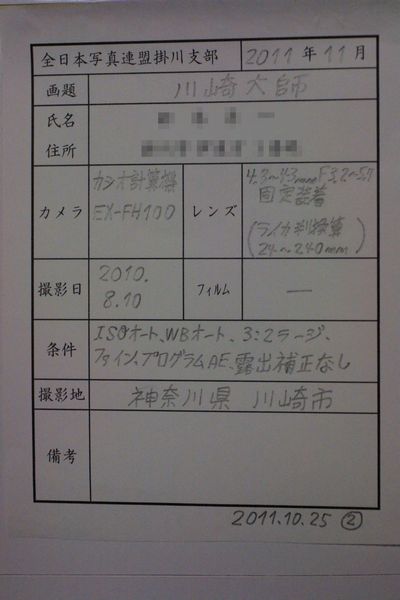 全日本写真連盟掛川支部 2011年11月
画題 川崎大師
氏名
住所
カメラ カシオ計算機 EX-FH100
レンズ 4.3〜43mm F3.2〜5.7
固定装着
(ライカ判換算
24〜240mm)
撮影日 2010.
8.10
フィルム —
条件 ISOオート、WBオート、3:2ラージ、
ファイン、プログラムAE、露出補正なし
撮影地 神奈川県 川崎市
備考
2011.10.25 ②